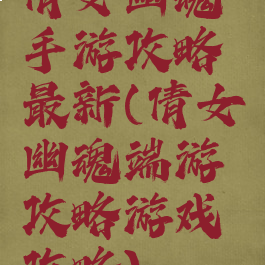 倩女幽魂
手游攻略
最新(倩女
幽魂端游
攻略游戏
攻略)